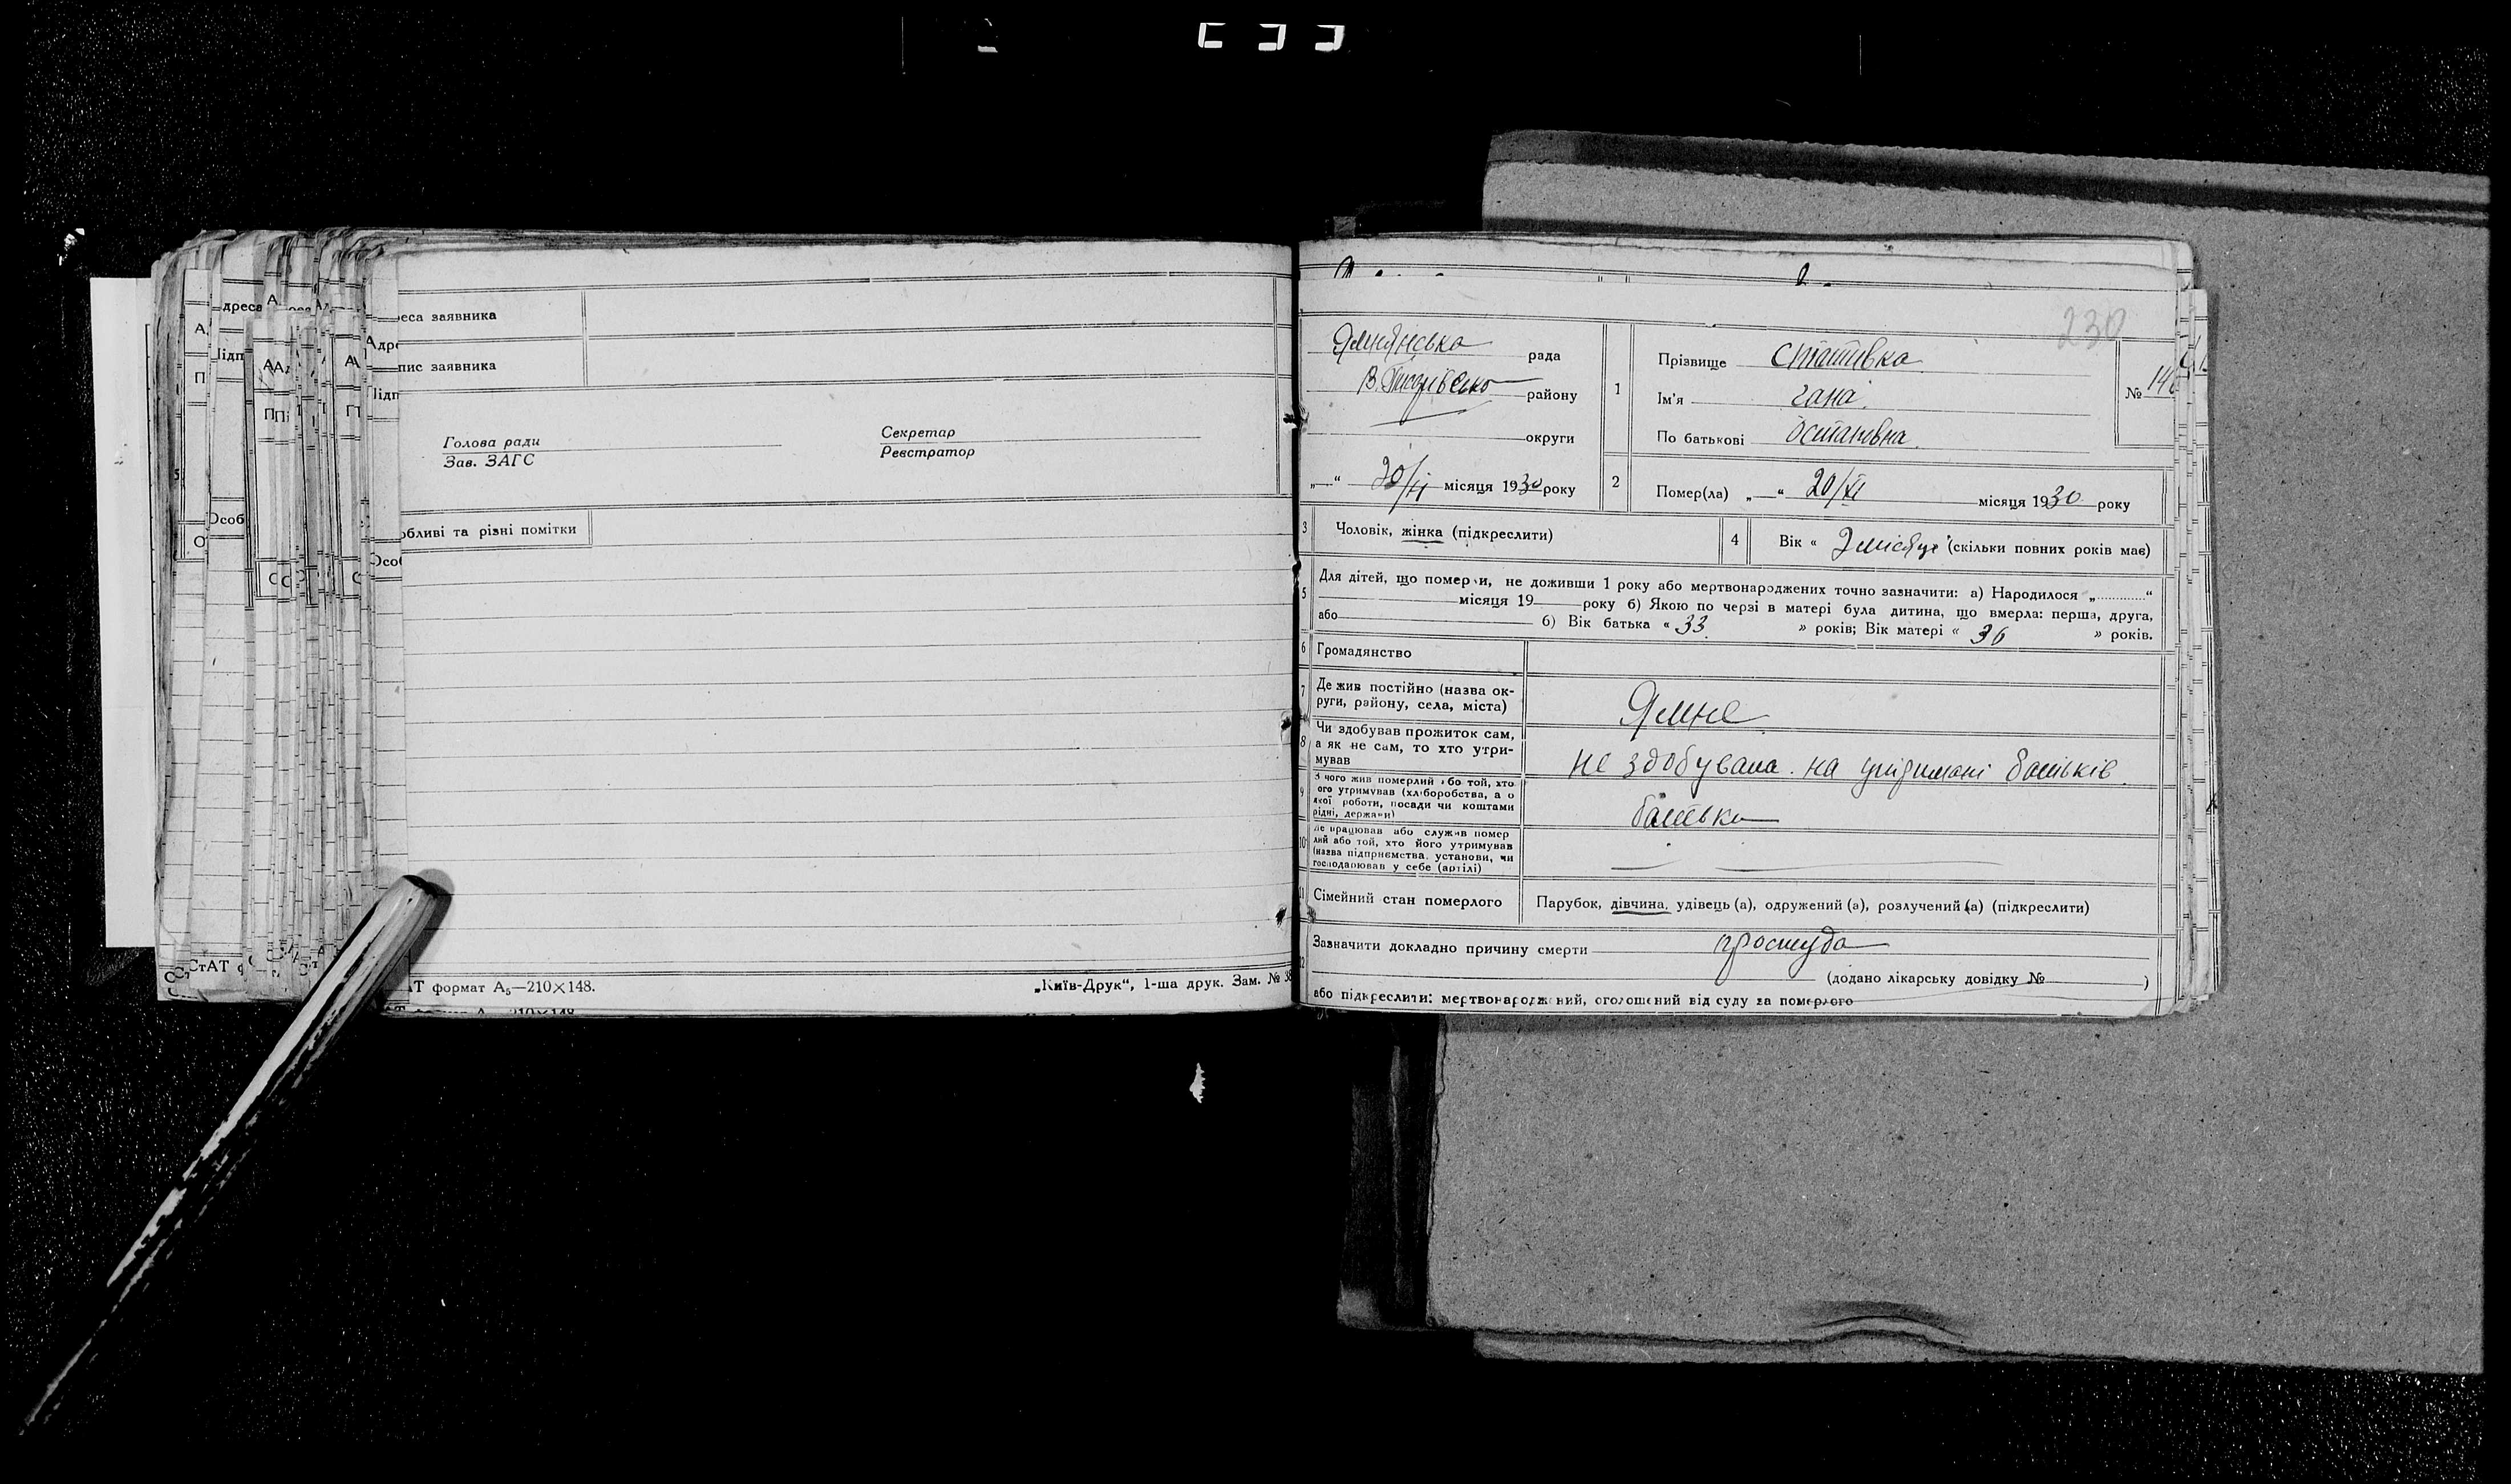 еса заявника
пис заявника
Голова ради
Зав. ЗАГС
Секретар
Реєстратор
обливі та різні помітки
АТ формат А₅—210×148.
„Київ-Друк“, 1-ша друк. Зам. № 38
230
Ямнянська рада
В. Писарівсько району
округи
„—“ 20/XI місяця 1930 року
1
Прізвище Статівка
Ім'я Гана
По батькові Остаповна
№ 146
2
Помер(ла) „—“ 20/XI місяця 1930 року
3
Чоловік, жінка (підкреслити)
4
Вік « 2 місяця » (скільки повних років має)
5
Для дітей, що померли, не доживши 1 року або мертвонароджених точно зазначити: а) Народилося „............“
місяця 19 року б) Якою по черзі в матері була дитина, що вмерла: перша, друга,
або б) Вік батька « 33 » років; Вік матері « 36 » років.
6
Громадянство
7
Де жив постійно (назва ок-
руги, району, села, міста)
Ямне
8
Чи здобував прожиток сам,
а як не сам, то хто утри-
мував
не здобувала на утримані батьків
9
З чого жив померлий або той, хто
ого утримував (хліборобства, а о
якої роботи, посади чи коштами
рідні, держави)
батька
10
Де працював або служив помер
лий або той, хто його утримував
(назва підприємства, установи, чи
господарював у себе (артілі)
11
Сімейний стан померлого
Парубок, дівчина, удівець (а), одружений (а), розлучений (а) (підкреслити)
12
Зазначити докладно причину смерти простуда
(додано лікарську довідку № )
або підкреслити: мертвонароджений, оголошений від суду за померлого